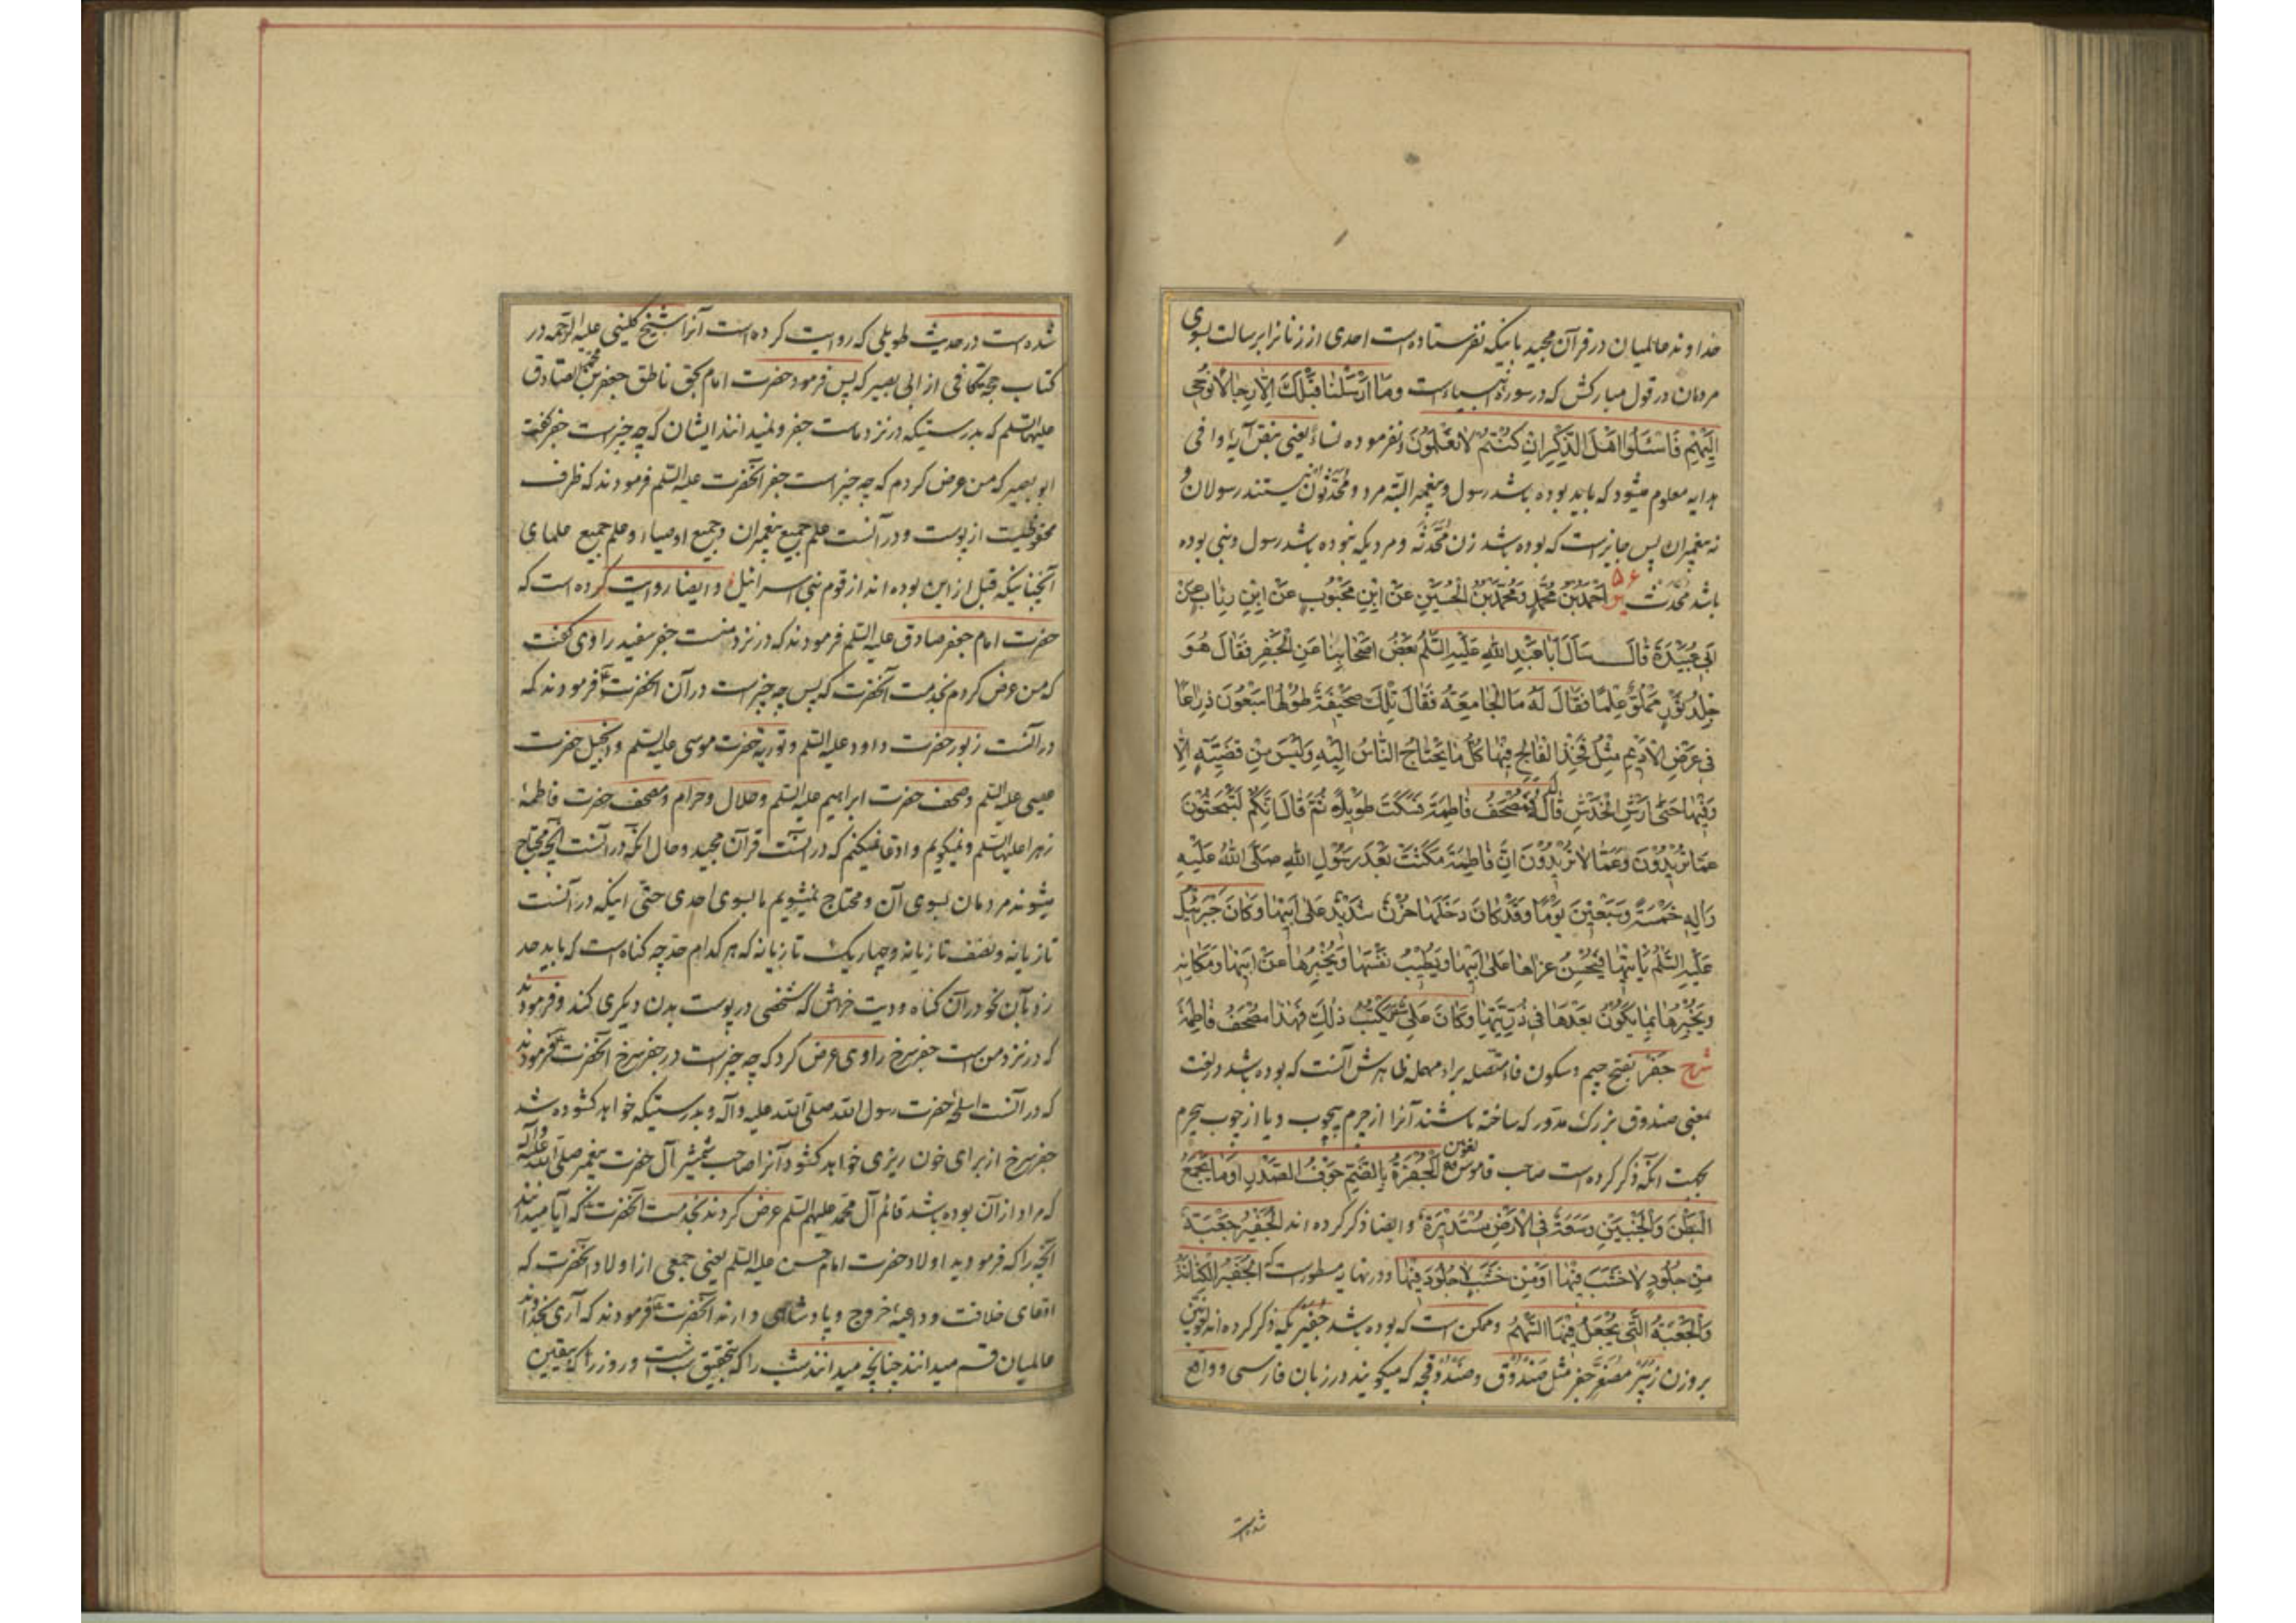 خداوند عالمیان در قرآن مجید باینکه نفرستاده است احدی از زنانرا برسالت بسوی
مردمان در قول مبارکش که در سورهٔ انبیاء است وَمَا اَرْسَلْنَا قَبْلَكَ اِلَّا رِجَالًا نُوحِی
اِلَيْهِمْ فَاسْئَلُوا اَهْلَ الذِّكْرِ اِنْ كُنْتُمْ لَا تَعْلَمُونَ و نفرموده نساءً یعنی بنقل آیه وافی
هدایه معلوم میشود که باید بوده باشد رسول و پیغمبر البته مرد و محدثون نیستند رسولان و
نه پیغمبران پس جایز است که بوده باشد زن مُحَدَّثَه و مردیکه نبوده باشد رسول و نبی بوده
باشد مُحَدَّث اَحْمَدُ بْنُ مُحَمَّدٍ وَمُحَمَّدُ بْنُ الْحُسَيْنِ عَنْ ابْنِ مَحْبُوبٍ عَنْ ابْنِ رِئَابٍ عَنْ
اَبِی عُبَيْدَةَ قَالَ سَأَلَ اَبَا عَبْدِ اللّٰهِ عَلَيْهِ السَّلٰمُ بَعْضُ اَصْحَابِنَا عَنِ الْجَفْرِ فَقَالَ هُوَ
جِلْدُ ثَوْرٍ مَمْلُوٌّ عِلْمًا فَقَالَ لَهُ مَا الْجَامِعَةُ فَقَالَ تِلْكَ صَحِيفَةٌ طُولُهَا سَبْعُونَ ذِرَاعًا
فِی عَرْضِ الْاَدِيمِ مِثْلُ فَخِذِ الْفَالِجِ فِيهَا كُلُّ مَا يَحْتَاجُ النَّاسُ اِلَيْهِ وَلَيْسَ مِنْ قَضِيَّةٍ اِلَّا
وَفِيهَا حَتّٰی اَرْشُ الْخَدْشِ قَالَ لَهُ فَمُصْحَفُ فَاطِمَةَ فَسَكَتَ طَوِيلًا ثُمَّ قَالَ اِنَّكُمْ لَتَبْحَثُونَ
عَمَّا تُرِيدُونَ وَعَمَّا لَا تُرِيدُونَ اِنَّ فَاطِمَةَ مَكَثَتْ بَعْدَ رَسُولِ اللّٰهِ صَلَّی اللّٰهُ عَلَيْهِ
وَاٰلِهِ خَمْسَةً وَسَبْعِينَ يَوْمًا وَقَدْ كَانَ دَخَلَهَا حُزْنٌ شَدِيدٌ عَلٰی اَبِيهَا وَكَانَ جَبْرَئِيلُ
عَلَيْهِ السَّلٰمُ يَأْتِيهَا فَيُحْسِنُ عَزَاهَا عَلٰی اَبِيهَا وَيُطَيِّبُ نَفْسَهَا وَيُخْبِرُهَا عَنْ اَبِيهَا وَمَكَانِهِ
وَيُخْبِرُهَا بِمَا يَكُونُ بَعْدَهَا فِی ذُرِّيَّتِهَا وَكَانَ عَلِیٌّ يَكْتُبُ ذٰلِكَ فَهٰذَا مُصْحَفُ فَاطِمَةَ
شرح جَفْر بفتح جیم و سکون فاء متصله براء مهمله ظاهرش آنست که بوده باشد در لغت
بمعنی صندوق بزرک مدوّر که ساخته باشند آنرا از چرم بیچوب و یا از چوب بیچرم
بجهت آنکه ذکر کرده است صاحب قاموس الْجُفْرَةُ بِالضَّمِّ جَوْفُ الصَّدْرِ اَوْ مَا يَجْمَعُ
الْبَطْنَ وَالْجَنْبَيْنِ وَسَعَةٌ فِی الْاَرْضِ مُسْتَدِيرَةٌ و ایضا ذکر کرده اند الْجَفِيرُ جَعْبَةٌ
مِنْ جُلُودٍ لَا خَشَبَ فِيهَا اَوْ مِنْ خَشَبٍ لَا جُلُودَ فِيهَا و در نهایه مسطور است که الْجَفِيرُ الْكِنَانَةُ
وَالْجَعْبَةُ الَّتِی يُجْعَلُ فِيهَا السِّهَامُ و ممکن است که بوده باشد جفیریکه ذکر کرده اند لغویین
بر وزن زُبَیْر مُصَغَّر جَفْر مثل صندوق و صندوقچه که میکویند در زبان فارسی و واقع
شده است
شده است در حدیث طویلی که روایت کرده است آنرا شیخ کلینی علیه الرحمه در
کتاب حجة کافی از ابی بصیر که پس فرمود حضرت امام بحق ناطق جعفر بن محمد الصادق
علیهما السلم که بدرستیکه در نزد ماست جفر و نمیدانند ایشان که چه چیز است جفر گفت
ابو بصیر که من عرض کردم که چه چیز است جفر آنحضرت علیه السلم فرمودند که ظرف
مخروطیست از پوست و در آنست علم جمیع پیغمبران و جمیع اوصیاء و علم جمیع علمای
آنچنانیکه قبل از این بوده اند از قوم بنی اسرائیل و ایضا روایت کرده است که
حضرت امام جعفر صادق علیه السلم فرمودند که در نزد منست جفر سفید راوی گفت
که من عرض کردم بخدمت آنحضرت که پس چه چیز است در آن آنحضرت فرمودند که
در آنست زبور حضرت داود علیه السلم و توریة حضرت موسی علیه السلم و انجیل حضرت
عیسی علیه السلم و صحف حضرت ابراهیم علیه السلم و حلال و حرام و مصحف حضرت فاطمهٔ
زهرا علیها السلم و نمیکویم و ادعا نمیکنم که در آنست قرآن مجید و حال آنکه در آنست آنچه محتاج
میشوند مردمان بسوی آن و محتاج نمیشویم ما بسوی احدی حتی اینکه در آنست
تازیانه و نصف تازیانه و چهاریک تازیانه که هر کدام حد چه کناه است که باید حد
زد بآن نحو در آن کناه و دیت خراش که شخصی در پوست بدن دیکری کند و فرمودند
که در نزد من است جفر سرخ راوی عرض کرد که چه چیز است در جفر سرخ آنحضرت فرمودند
که در آنست اسلحهٔ حضرت رسول الله صلی الله علیه و آله و بدرستیکه خواهد کشوده شد
جفر سرخ از برای خون ریزی خواهد کشود آنرا صاحب شمشیر آل حضرت پیغمبر صلی الله علیه و آله
که مراد از آن بوده باشد قائم آل محمد علیهم السلم عرض کردند بخدمت آنحضرت که آیا میدانند
آنچه را که فرمودید اولاد حضرت امام حسن علیه السلم یعنی جمعی از اولاد آنحضرت که
ادعای خلافت و داعیهٔ خروج و پادشاهی دارند آنحضرت فرمودند که آری بخداوند
عالمیان قسم میدانند چنانچه میدانند شب را که بتحقیق شب است و روز را که بیقین